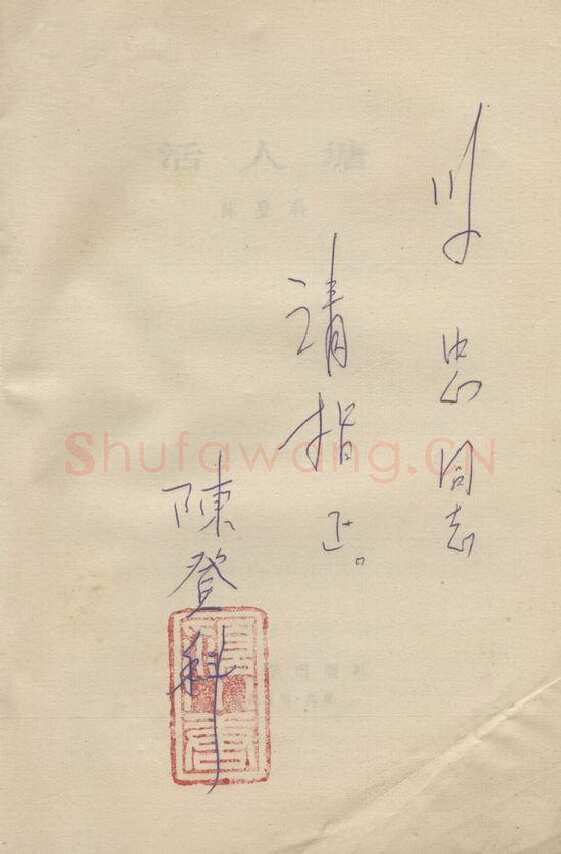 活人塘
陈登科
忠同志
请指正。
陳登科
Shufawang.CN